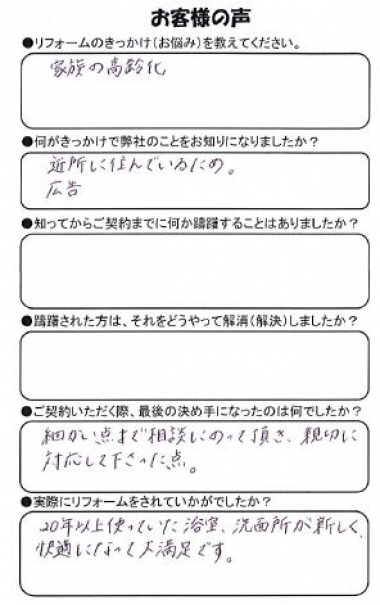 お客様の声
●リフォームのきっかけ(お悩み)を教えてください。
家族の高齢化
●何がきっかけで弊社のことをお知りになりましたか？
近所に住んでいるため。
広告
●知ってからご契約までに何か躊躇することはありましたか？
●躊躇された方は、それをどうやって解消(解決)しましたか？
●ご契約いただく際、最後の決め手になったのは何でしたか？
細かい点まで相談にのって頂き、親切に
対応して下さった点。
●実際にリフォームをされていかがでしたか？
20年以上使っていた浴室、洗面所が新しく、
快適になって大満足です。